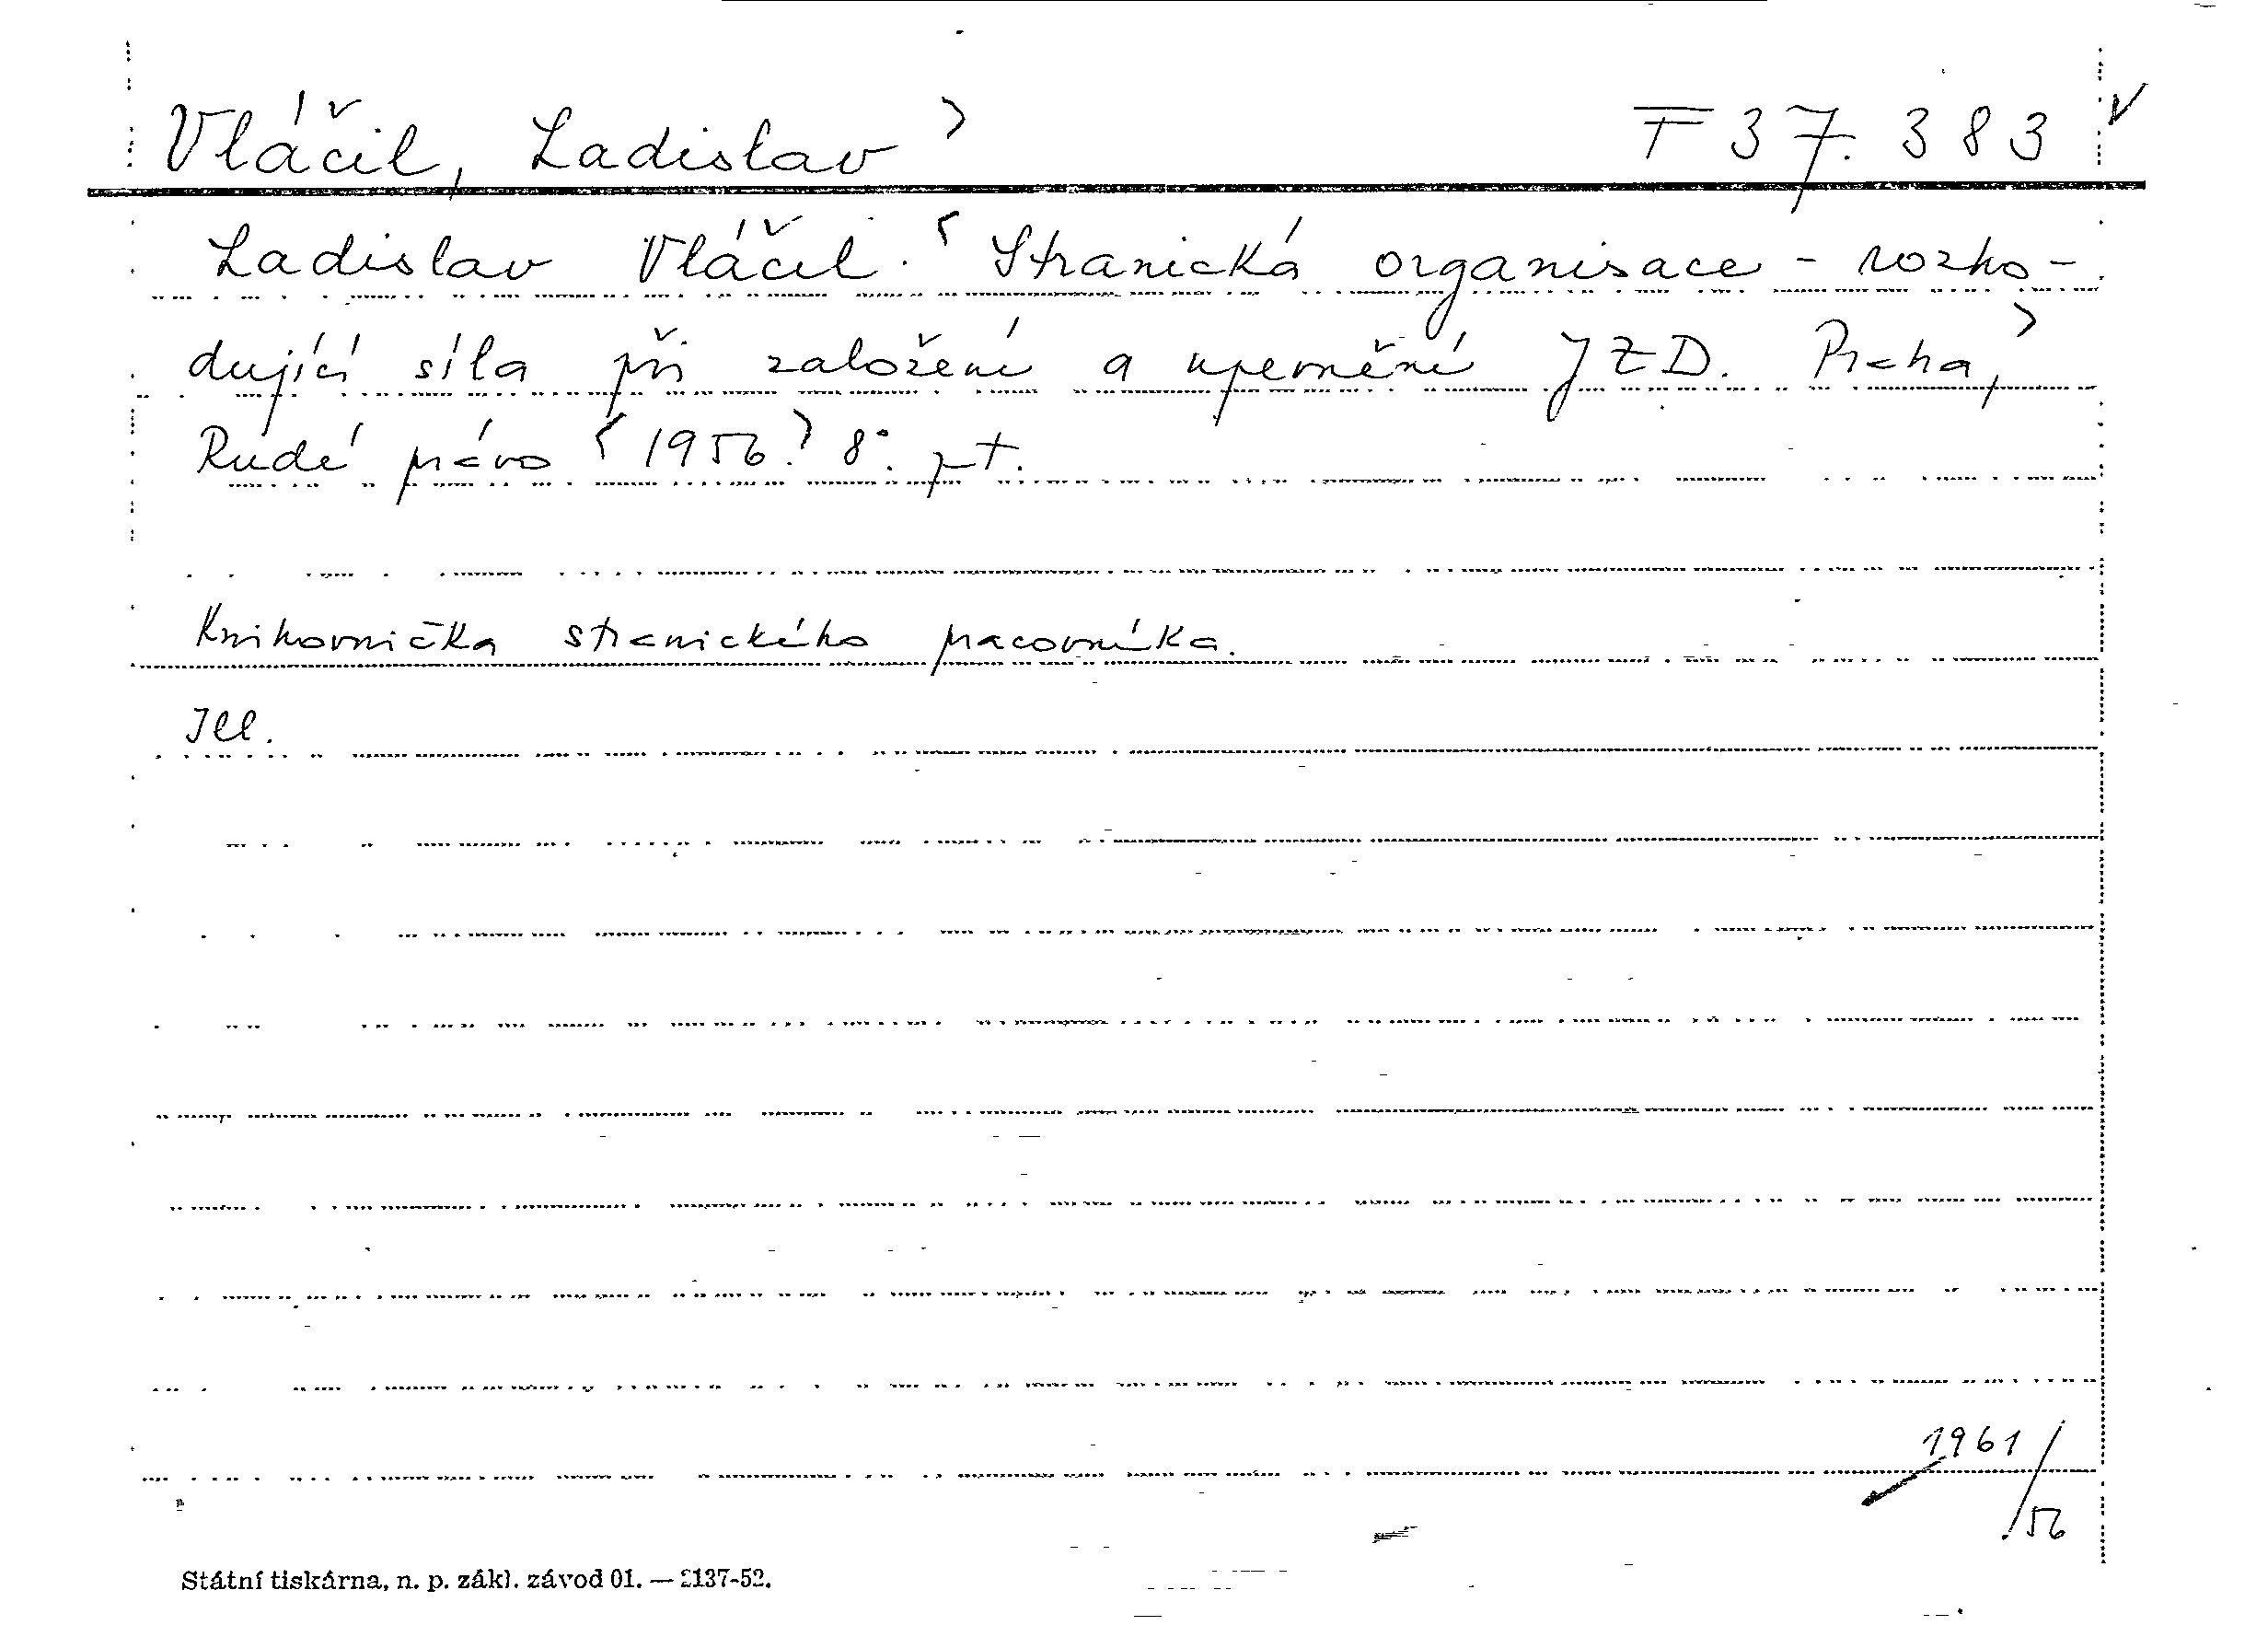 Vláčil, Ladislav> F 37.383 v
Ladislav Vláčil. <Stranická organisace - rozho-
dující síla při založení a upevnění JZD. Praha,>
Rudé právo <1956.> 8°. pt.
Knihovnička stranického pracovníka.
Ill.
1961/
/56
Státní tiskárna, n. p. zákl. závod 01. — 2137-52.